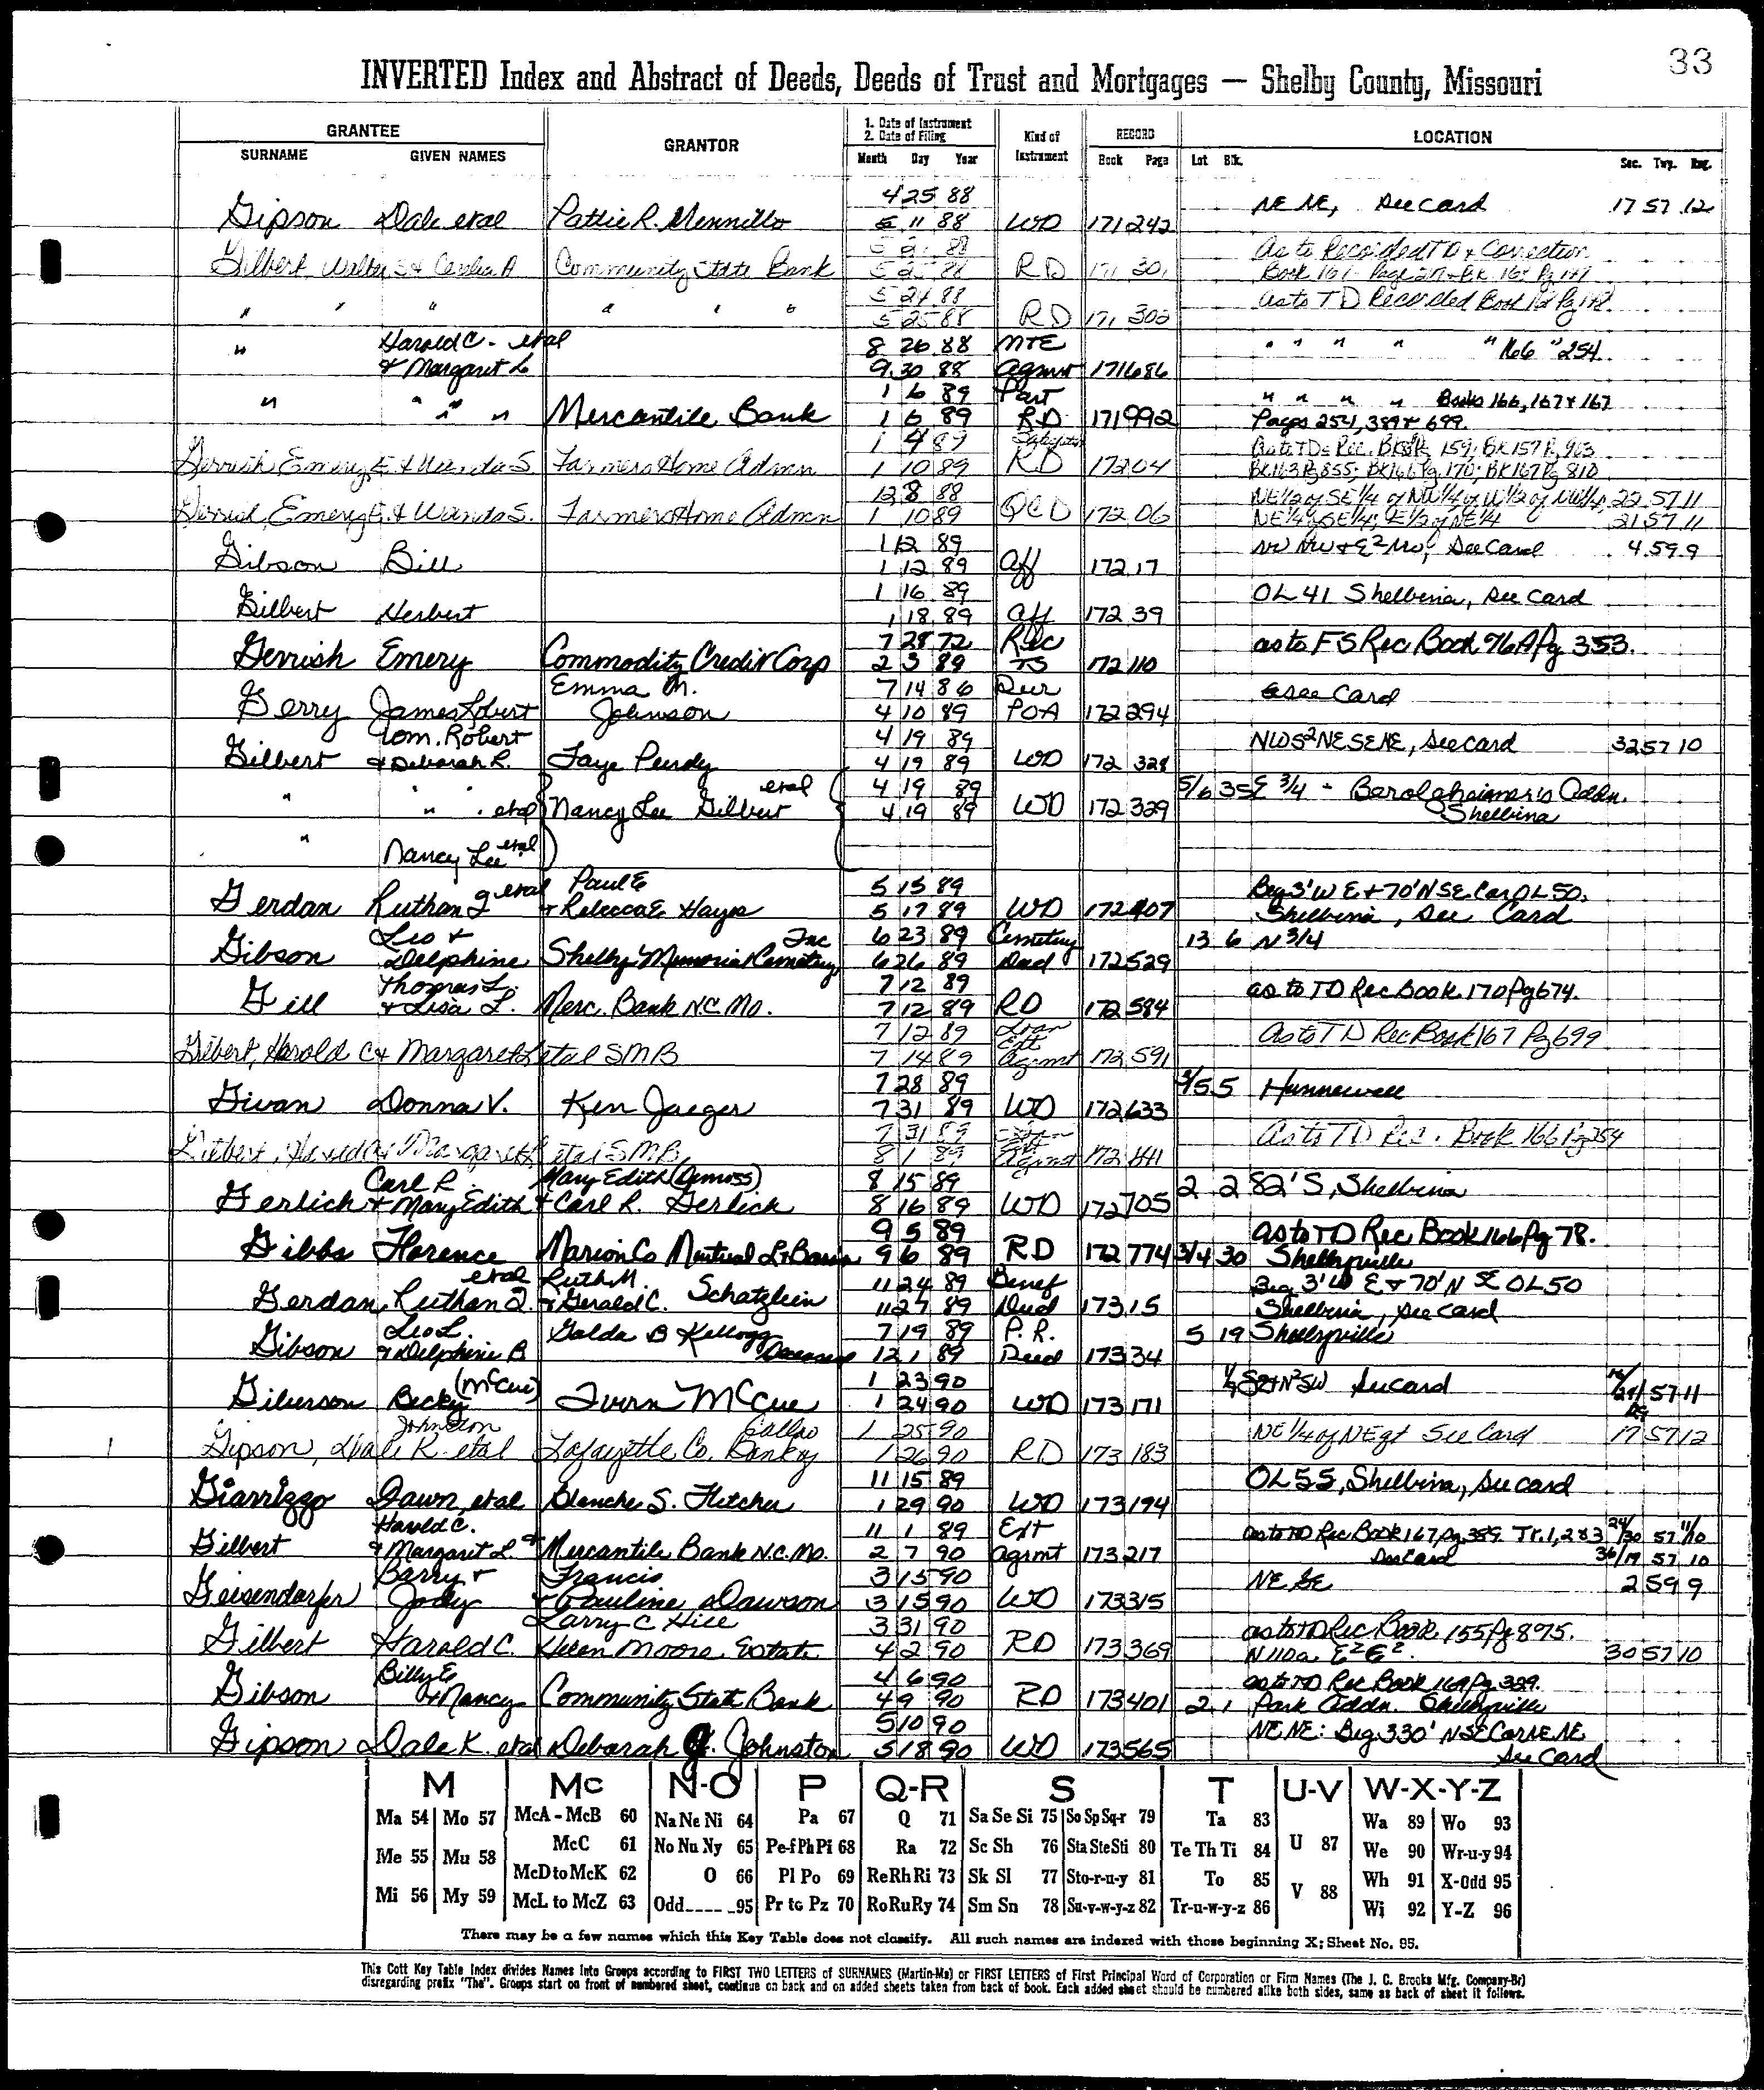 33
INVERTED Index and Abstract of Deeds, Deeds of Trust and Mortgages — Shelby County, Missouri
GRANTEE GRANTOR 1. Date of Instrument 2. Date of Filing Kind of Instrument RECORD LOCATION
SURNAME GIVEN NAMES Month Day Year Book Page Lot Blk. Sec. Twp. Rng.
4 25 88 NE NE, See Card 17 57 12
Gipson Dale etal Pattie R. Mennillo 5 11 88 WD 171 242
As to Recorded TD & Correction
Gilbert, Walter S & Cecelia A Community State Bank RD 171 301
5 24 88 as to TD Recorded Book
" " " " " " 5 25 88 RD 171 302
Harold C. etal 8 26 88 MTE " " " " " 166 " 254
" & Margaret L 9 30 88 Agmt 171 686
1 6 89 Part " " " " Books 166, 167 & 167
" " " " Mercantile Bank 1 6 89 RD 171 992 Pages 254, 389 & 699.
1 4 89 as to TDs Rec. 159; BK 157 Pg 963
Gerrish, Emery E & Wanda S. Farmers Home Admn 1 10 89 RD 172 04 BK163 Pg 855; BK166 Pg 170; BK167 Pg 810
12 8 88 NE1/2 of SE1/4 of NW1/4 of W1/2 of 22 57 11
Gerrish, Emery E. & Wanda S. Farmers Home Admn 1 10 89 QCD 172 06 NE1/4 of SE1/4; E1/2 of NE1/4 21 57 11
1 12 89 NW NW & E2 NW, See Card 4 59 9
Gibson Bill 1 12 89 Aff 172 17
1 16 89 OL 41 Shelbina, See Card
Gilbert Herbert 1 18 89 Aff 172 39
7 28 72 Rec as to FS Rec Book 76A Pg 353.
Gerrish Emery Commodity Credit Corp 2 3 89 TS 172 110
Emma M. 7 14 86 Dur See Card
Gerry James Robert Johnson 4 10 89 POA 172 294
Tom. Robert 4 19 89 NWS2NESENE, See Card 32 57 10
Gilbert & Deborah R. Faye Purdy 4 19 89 WD 172 328
etal 4 19 89 5/6 35 E 3/4 - Berolgheimer's Addn.
" " " etal Nancy Lee Gilbert 4 19 89 WD 172 329 Shelbina
" Nancy Lee etal
etal Paul E 5 15 89 Beg 3' W E & 70' N SE Cor OL 50.
Gerdan Ruthan J & Rebecca E Hays 5 17 89 WD 172 407 Shelbina, See Card
Leo & Inc 6 23 89 Cemetery 13 6 N 3/4
Gibson Delphine Shelby Memorial Cemetery 6 26 89 Deed 172 529
Thomas L. 7 12 89 as to TD Rec Book 170 Pg 674.
Gill & Lisa L. Merc. Bank N.C. Mo. 7 12 89 RD 172 584
7 12 89 Loan Ext As to TD Rec Book 167 Pg 699
Gilbert, Harold C & Margaret L etal SMB 7 14 89 Agrmt 172 591
7 28 89 5 5 Hunnewell
Givan Donna V. Ken Jaeger 7 31 89 WD 172 633
7 31 89 As to TD Rec. Book 166 Pg 254
Gilbert, Harold C & Margaret L etal SMB 8 1 89 Agmt 172 641
Carl R. Mary Edith (Amoss) 8 15 89 2 2 82' S, Shelbina
Gerlich & Mary Edith & Carl R. Gerlich 8 16 89 WD 172 705
9 5 89 as to TD Rec Book 166 Pg 78.
Gibbs Florence Marion Co Mutual L & Bassn 9 6 89 RD 172 774 3/4 30 Shelbyville
etal Ruth M. 11 24 89 Benef Beg 3' W E & 70' N SE OL 50
Gerdan, Ruthan J. & Gerald C. Schatzlein 11 27 89 Deed 173 15 Shelbina, See Card
Leo L. Golda B Kellogg 7 19 89 P.R. 5 19 Shelbyville
Gibson & Delphine B Deceased 12 1 89 Deed 173 34
(McCue) 1 23 90 See Card 57 11
Giberson Becky Ivorn McCue 1 24 90 WD 173 171
Johnston Callao 1 25 90 NE 1/4 of NE qt See Card 17 57 12
Gipson, Dale K etal Lafayette Co. Bank of 1 26 90 RD 173 183
11 15 89 OL 55, Shelbina, See Card
Giarrizzo Dawn, etal Blanche S. Fletcher 1 29 90 WD 173 194
Harold C. 11 1 89 Ext as to TD Rec Book 167 Pg 389 Tr. 1, 2 & 3 24/30 57 11/10
Gilbert & Margaret L. Mercantile Bank N.C. Mo. 2 7 90 Agrmt 173 217 See Card 36/19 57 10
Barry & Francis 3 15 90 NE SE 2 59 9
Geisendorfer Jody & Pauline Dawson 3 15 90 WD 173 315
Larry C Hill 3 31 90 as to TD Rec Book 155 Pg 895.
Gilbert Harold C. Helen Moore Estate 4 2 90 RD 173 369 N 110a E2E2. 30 57 10
Billy E 4 6 90 as to TD Rec Book 169 Pg 389.
Gibson & Nancy Community State Bank 4 9 90 RD 173 401 2 1 Park Addn. Shelbyville
5 10 90 NE NE: Beg 330' N SE Cor NE NE
Gipson Dale K. etal Deborah J. Johnston 5 18 90 WD 173 565 See Card
M Mc N-O P Q-R S T U-V W-X-Y-Z
Ma 54 Mo 57 McA - McB 60 Na Ne Ni 64 Pa 67 Q 71 Sa Se Si 75 So Sp Sq-r 79 Ta 83 U 87 Wa 89 Wo 93
Me 55 Mu 58 McC 61 No Nu Ny 65 Pe-f Ph Pi 68 Ra 72 Sc Sh 76 Sta Ste Sti 80 Te Th Ti 84 We 90 Wr-u-y 94
McD to McK 62 O 66 Pl Po 69 Re Rh Ri 73 Sk Sl 77 Sto-r-u-y 81 To 85 V 88 Wh 91 X-Odd 95
Mi 56 My 59 McL to McZ 63 Odd---- -95 Pr to Pz 70 Ro Ru Ry 74 Sm Sn 78 Su-v-w-y-z 82 Tr-u-w-y-z 86 Wi 92 Y-Z 96
There may be a few names which this Key Table does not classify. All such names are indexed with those beginning X; Sheet No. 95.
This Cott Key Table Index divides Names Into Groups according to FIRST TWO LETTERS of SURNAMES (Martin-Ma) or FIRST LETTERS of First Principal Word of Corporation or Firm Names (The J. C. Brooks Mfg. Company-Br)
disregarding prefix "The". Groups start on front of numbered sheet, continue on back and on added sheets taken from back of book. Each added sheet should be numbered alike both sides, same as back of sheet it follows.